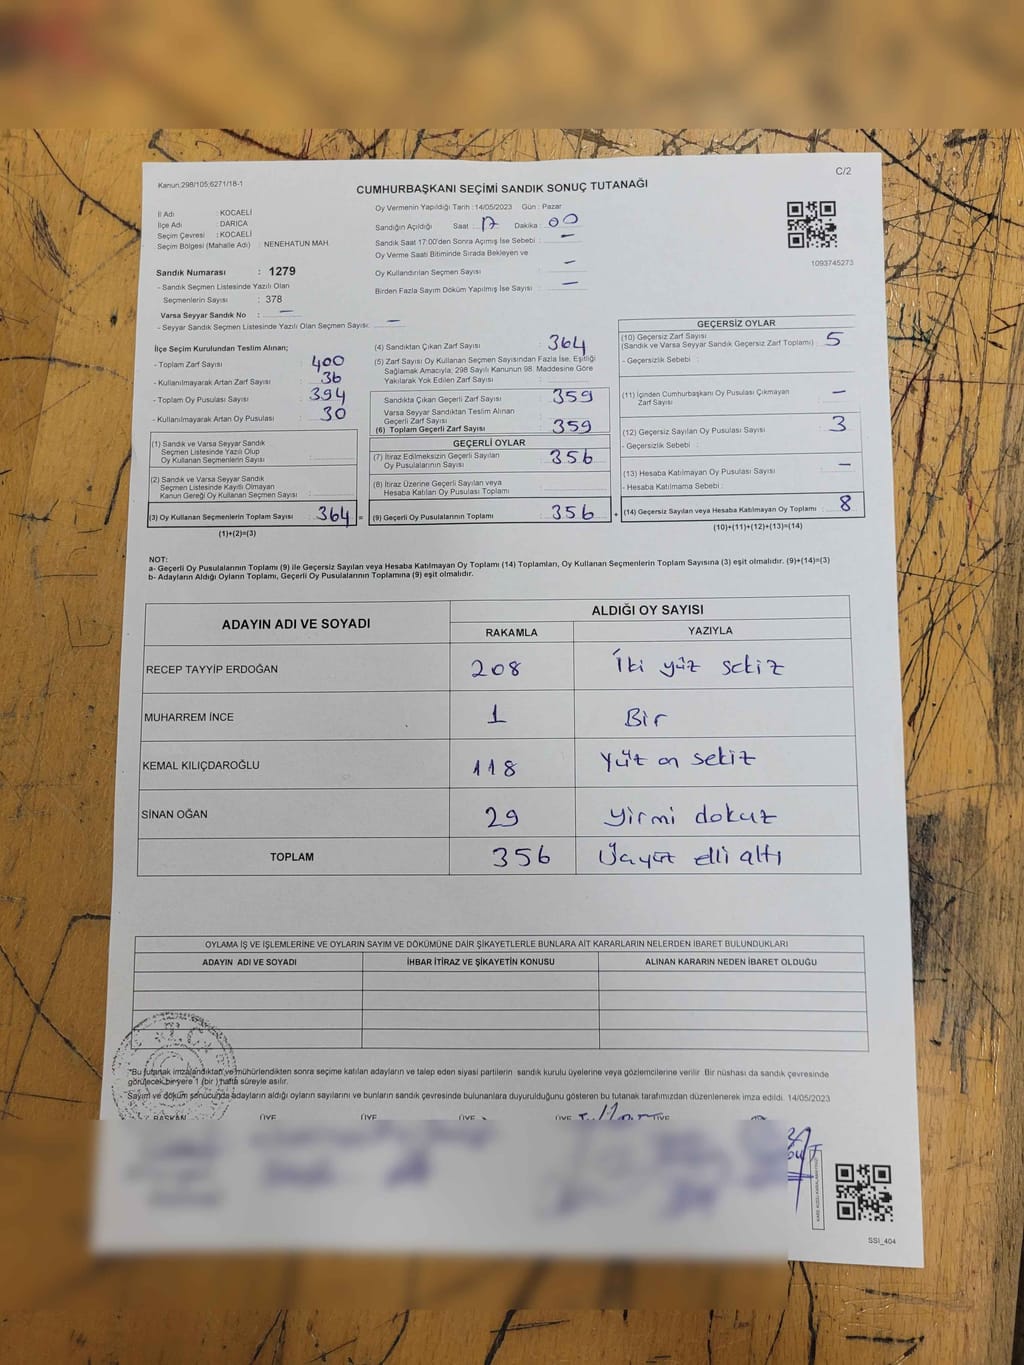 Kanun:298/105;6271/18-1
C/2
CUMHURBAŞKANI SEÇİMİ SANDIK SONUÇ TUTANAĞI
İl Adı : KOCAELİ
İlçe Adı : DARICA
Seçim Çevresi : KOCAELİ
Seçim Bölgesi (Mahalle Adı) : NENEHATUN MAH.
Sandık Numarası : 1279
- Sandık Seçmen Listesinde Yazılı Olan
Seçmenlerin Sayısı : 378
Varsa Seyyar Sandık No : —
- Seyyar Sandık Seçmen Listesinde Yazılı Olan Seçmen Sayısı: —
Oy Vermenin Yapıldığı Tarih : 14/05/2023 Gün : Pazar
Sandığın Açıldığı Saat : 17 Dakika : 00
Sandık Saat 17:00'den Sonra Açımış İse Sebebi : —
Oy Verme Saati Bitiminde Sırada Bekleyen ve
Oy Kullandırılan Seçmen Sayısı : —
Birden Fazla Sayım Döküm Yapılmış İse Sayısı : —
1093745273
İlçe Seçim Kurulundan Teslim Alınan;
- Toplam Zarf Sayısı : 400
- Kullanılmayarak Artan Zarf Sayısı : 36
- Toplam Oy Pusulası Sayısı : 394
- Kullanılmayarak Artan Oy Pusulası : 30
(1) Sandık ve Varsa Seyyar Sandık
Seçmen Listesinde Yazılı Olup
Oy Kullanan Seçmenlerin Sayısı :
(2) Sandık ve Varsa Seyyar Sandık
Seçmen Listesinde Kayıtlı Olmayan
Kanun Gereği Oy Kullanan Seçmen Sayısı :
(3) Oy Kullanan Seçmenlerin Toplam Sayısı : 364 =
(1)+(2)=(3)
(4) Sandıktan Çıkan Zarf Sayısı : 364
(5) Zarf Sayısı Oy Kullanan Seçmen Sayısından Fazla İse, Eşitliği
Sağlamak Amacıyla; 298 Sayılı Kanunun 98. Maddesine Göre
Yakılarak Yok Edilen Zarf Sayısı :
Sandıkta Çıkan Geçerli Zarf Sayısı : 359
Varsa Seyyar Sandıktan Teslim Alınan
Geçerli Zarf Sayısı :
(6) Toplam Geçerli Zarf Sayısı : 359
GEÇERLİ OYLAR
(7) İtiraz Edilmeksizin Geçerli Sayılan
Oy Pusulalarının Sayısı : 356
(8) İtiraz Üzerine Geçerli Sayılan veya
Hesaba Katılan Oy Pusulası Toplamı :
(9) Geçerli Oy Pusulalarının Toplamı : 356 +
GEÇERSİZ OYLAR
(10) Geçersiz Zarf Sayısı
(Sandık ve Varsa Seyyar Sandık Geçersiz Zarf Toplamı) : 5
- Geçersizlik Sebebi :
(11) İçinden Cumhurbaşkanı Oy Pusulası Çıkmayan
Zarf Sayısı : —
(12) Geçersiz Sayılan Oy Pusulası Sayısı : 3
- Geçersizlik Sebebi :
(13) Hesaba Katılmayan Oy Pusulası Sayısı : —
- Hesaba Katılmama Sebebi :
(14) Geçersiz Sayılan veya Hesaba Katılmayan Oy Toplamı : 8
(10)+(11)+(12)+(13)=(14)
NOT:
a- Geçerli Oy Pusulalarının Toplamı (9) ile Geçersiz Sayılan veya Hesaba Katılmayan Oy Toplamı (14) Toplamları, Oy Kullanan Seçmenlerin Toplam Sayısına (3) eşit olmalıdır. (9)+(14)=(3)
b- Adayların Aldığı Oyların Toplamı, Geçerli Oy Pusulalarının Toplamına (9) eşit olmalıdır.
ADAYIN ADI VE SOYADI
ALDIĞI OY SAYISI
RAKAMLA YAZIYLA
RECEP TAYYİP ERDOĞAN 208 İki yüz sekiz
MUHARREM İNCE 1 Bir
KEMAL KILIÇDAROĞLU 118 Yüz on sekiz
SİNAN OĞAN 29 yirmi dokuz
TOPLAM 356 Üçyüz elli altı
OYLAMA İŞ VE İŞLEMLERİNE VE OYLARIN SAYIM VE DÖKÜMÜNE DAİR ŞİKAYETLERLE BUNLARA AİT KARARLARIN NELERDEN İBARET BULUNDUKLARI
ADAYIN ADI VE SOYADI İHBAR İTİRAZ VE ŞİKAYETİN KONUSU ALINAN KARARIN NEDEN İBARET OLDUĞU
T.C.
*Bu tutanak imzalandıktan ve mühürlendikten sonra seçime katılan adayların ve talep eden siyasi partilerin sandık kurulu üyelerine veya gözlemcilerine verilir. Bir nüshası da sandık çevresinde
görülecek bir yere 1 (bir ) hafta süreyle asılır.
Sayım ve döküm sonucunda adayların aldığı oyların sayılarını ve bunların sandık çevresinde bulunanlara duyurulduğunu gösteren bu tutanak tarafımızdan düzenlenerek imza edildi. 14/05/2023
BAŞKAN ÜYE ÜYE ÜYE ÜYE ÜYE
SSI_404